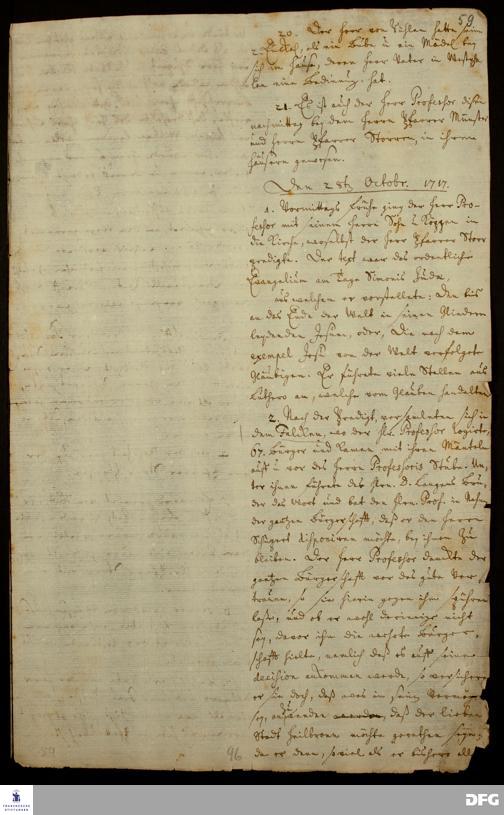 59
20. Der Herr von Pühlen hatte seine
sich im Hause, deren Herr Vater in
eine Bedienung hat.
21. Es ist auch der Herr Professor diesen
nachmittag bey dem Herrn Pfarrer Münster
und Herrn Pfarrer Storren, in ihren
Häusern gewesen.
Den 28t. Octobr. 1717.
1. Vormittags frühe ging der Herr Pro-
fessor mit seinem Herrn Sohn u. Köppen in
die Kirche, woselbst der Herr Pfarrer Storr
predigte. Der text war das ordentliche
Evangelium am Tage Simonis Judæ,
aus welchem er vorstellete: Den bis
an das Ende der Welt in seinen Gliedern
leydenden Jesum, oder, Die nach dem
exempel Jesu von der Welt verfolgete
Gläubigen. Er führete viele Stellen aus
Luthero an, welche vom Glauben handelten.
2. Nach der Predigt, versamleten sich in
dem Falcken, wo der Hr. Professor logirte,
67. Bürger und kamen mit ihren Mänteln
auff u. vor des Herrn Professoris Stube. Un-
ter ihnen führete des Hrn. D. Langens Bru-
der das Wort und bat den Hrn. Prof. im Namen
der gantzen Bürgerschafft, daß er den Herrn
disponiren möchte, bey ihnen zu
bleiben. Der Herr Professor danckte der
gantzen Bürgerschafft vor das gute Ver-
trauen, so sie hierin gegen ihm spühren
lasse, und ob er wohl derienige nicht
sey, davor ihn die werthe Bürger-
schafft hielte, nemlich daß es auff seine
decision ankommen werde, so versichere
er sie doch, daß was in seinem Vermögen
sey, anzuwenden, daß der lieben
Stadt Heilbronn möchte gerathen seyn;
da er denn, so viel als er bishero
96
FRANCKESCHE STIFTUNGEN
DFG